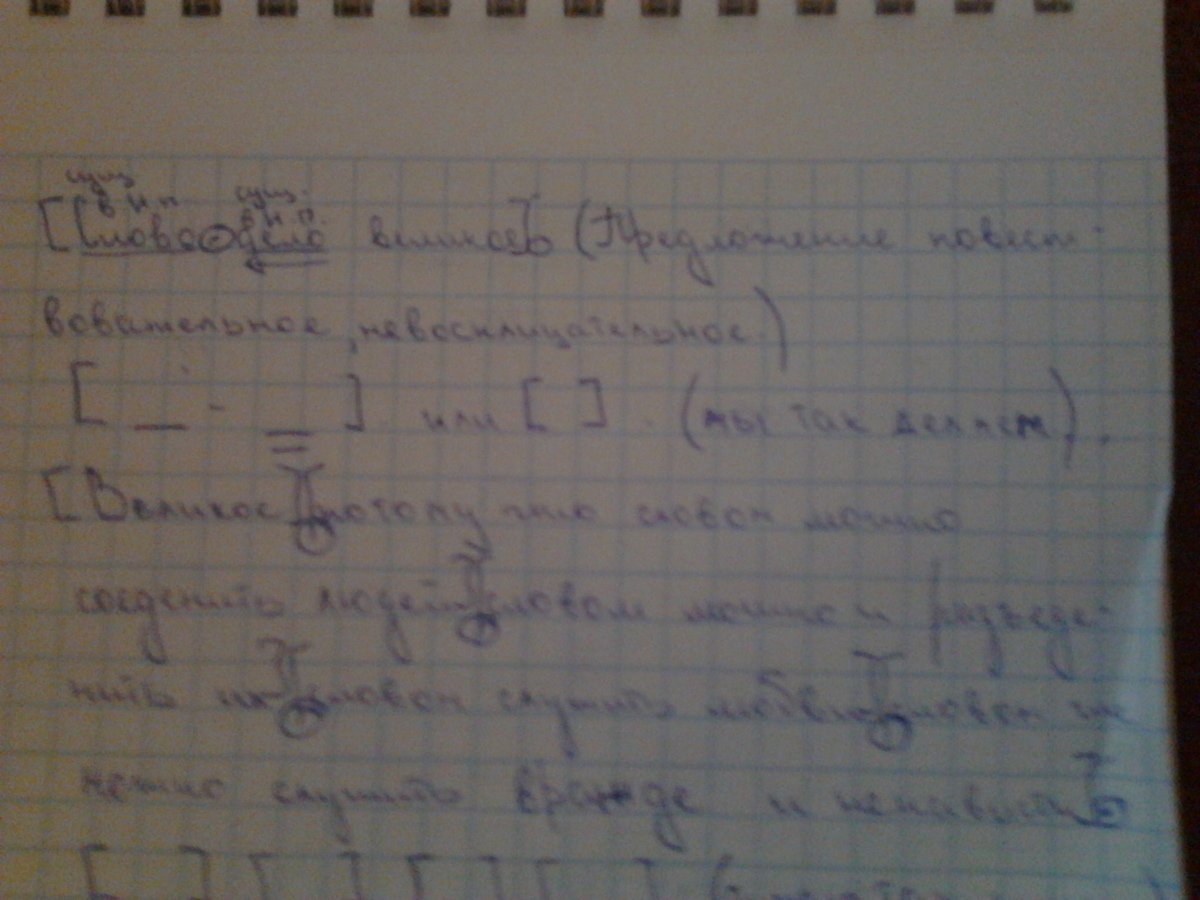 сущ. сущ.
в И п. в И п.
[Слово - дело великое]. (Предложение повест-
вовательное, невосклицательное.)
[ — - = ]. или [ ]. (мы так делаем).
[Великое] потому что словом можно
соеденить людей] словом можно и разъеде-
нить их] словом служить любви] словом
служить вражде и ненависти].
[ ] [ ] [ ] [ ] (